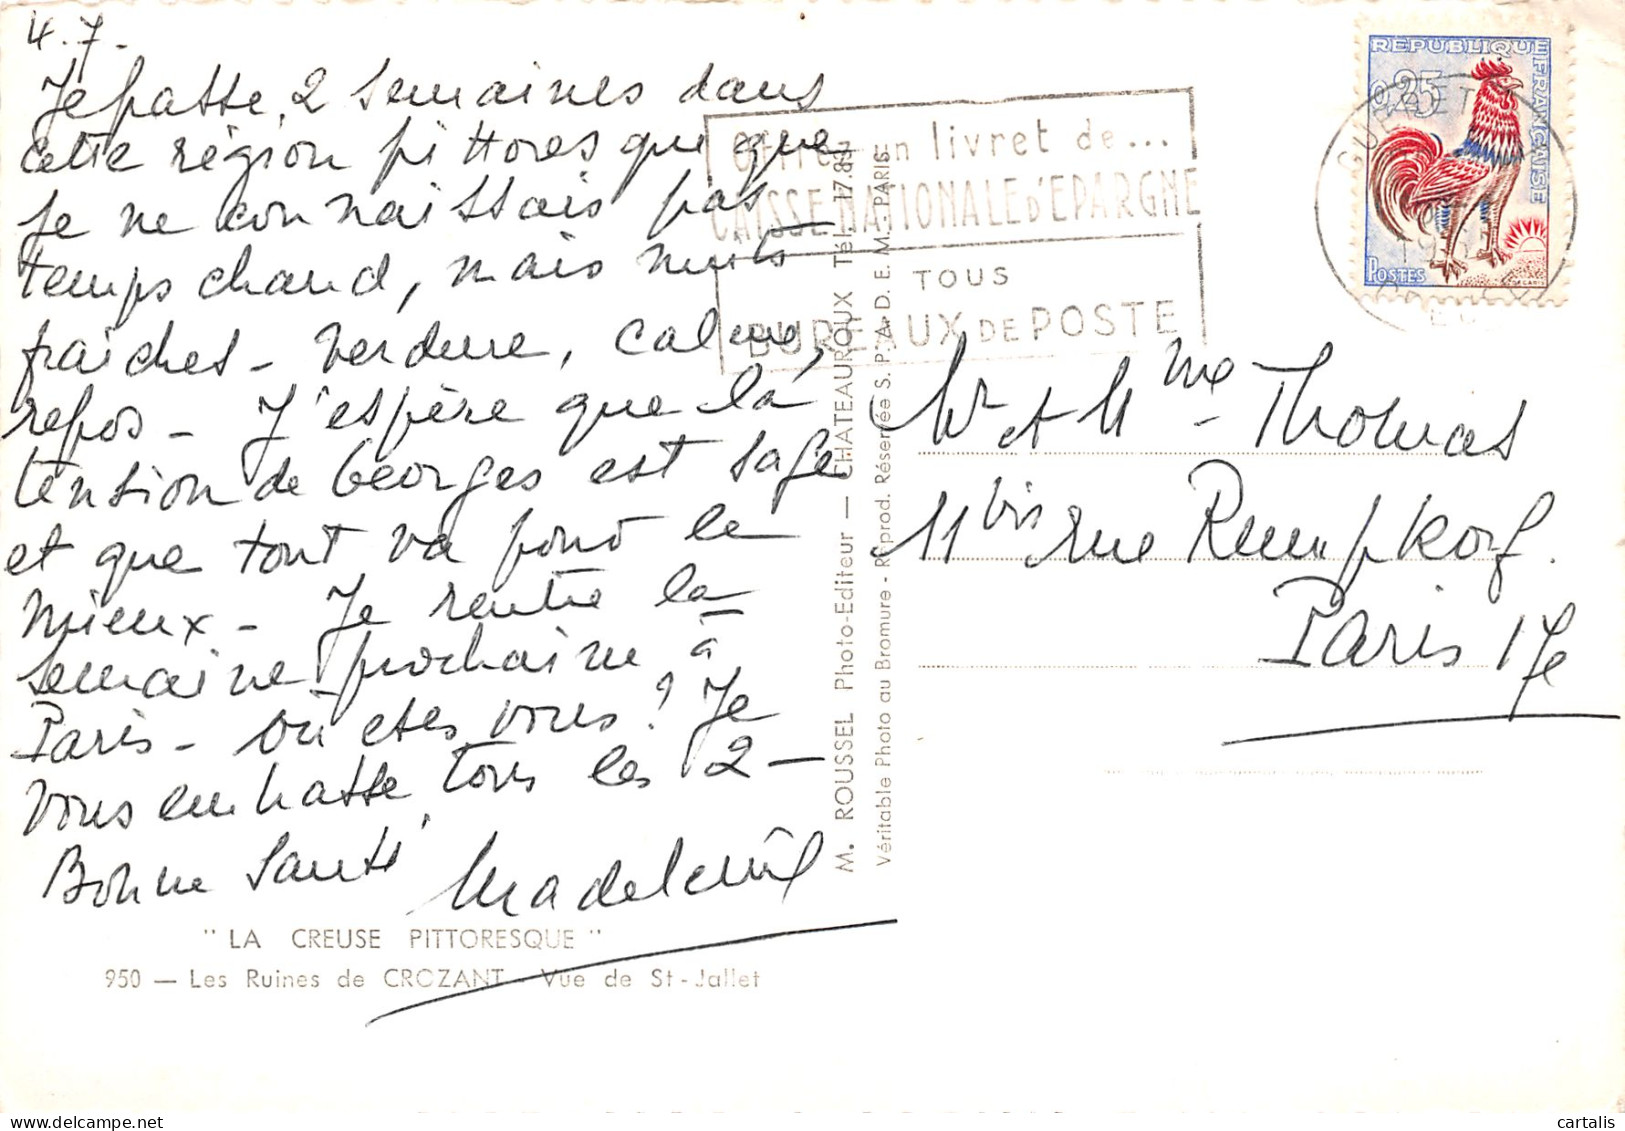 4.7.
Je passe 2 semaines dans
cette région pittoresque que
je ne connaissais pas
temps chaud, mais nuits
fraîches - Verdure, calme,
repos - J'espère que la
tension de Georges est sage
et que tout va pour le
mieux - Je rentre la
semaine prochaine à
Paris - où êtes vous? Je
vous embrasse tous les 2 -
Bonne Santé
"LA CREUSE PITTORESQUE"
950 — Les Ruines de CROZANT - Vue de St-Jallet
M. ROUSSEL Photo-Editeur — CHATEAUROUX Tél. 17.83
Véritable Photo au Bromure - Reprod. Réservée S.P.A.D.E.M. PARIS
Offrez un livret de...
CAISSE NATIONALE D'EPARGNE
TOUS
BUREAUX DE POSTE
REPUBLIQUE FRANÇAISE
0,25
POSTES
Mr et Mme Thomas
11 bis rue Rumpkorf.
Paris 17e
cartalis